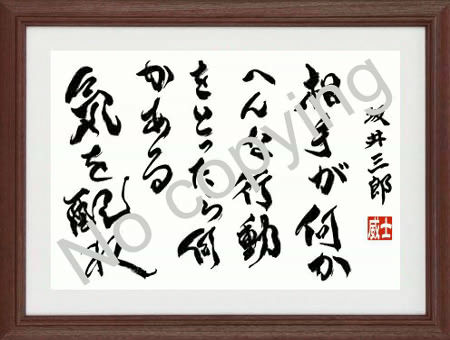 坂井三郎
威士
相手が何か
へんな行動
をとったら何
かある
気を配れ
No copying